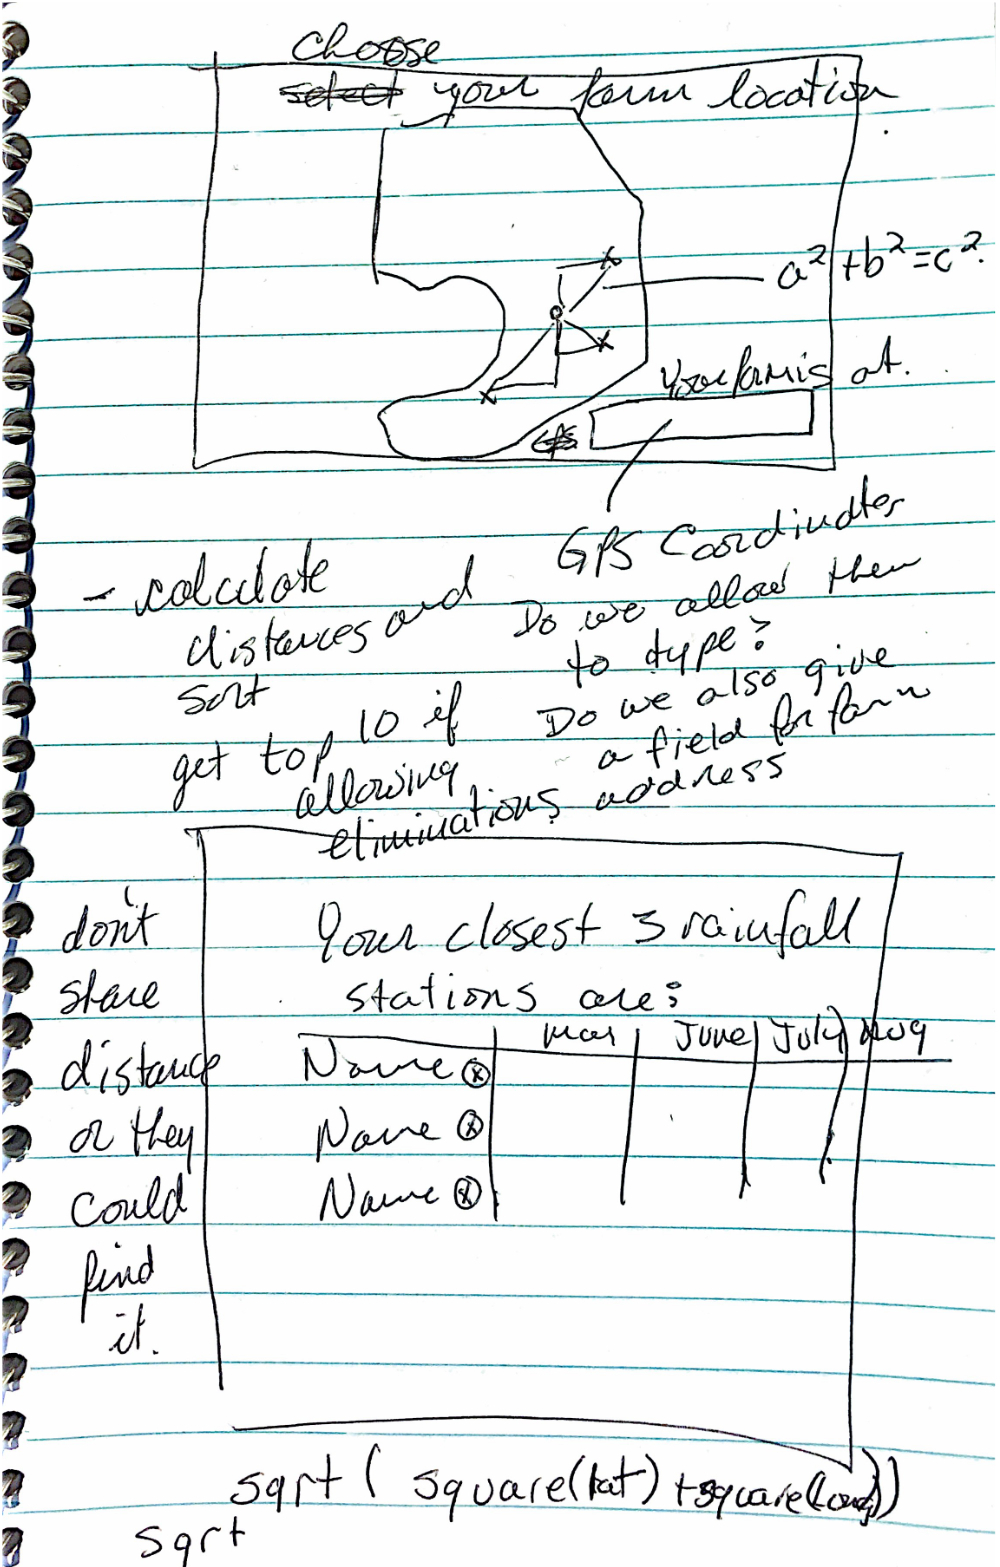 choose
select your farm location
a² + b² = c².
Your farm is at.
GPS
GPS Coordinates
Do we allow them
to type?
Do we also give
a field for farm
address
- calculate
distances and
sort
get top 10 if
allowing
eliminations
don't
share
distance
or they
could
find
it.
Your closest 3 rainfall
stations are:
June July Aug
Name ⓧ
Name ⓧ
Name ⓧ
sqrt ( square(lat) + square(long))
sqrt